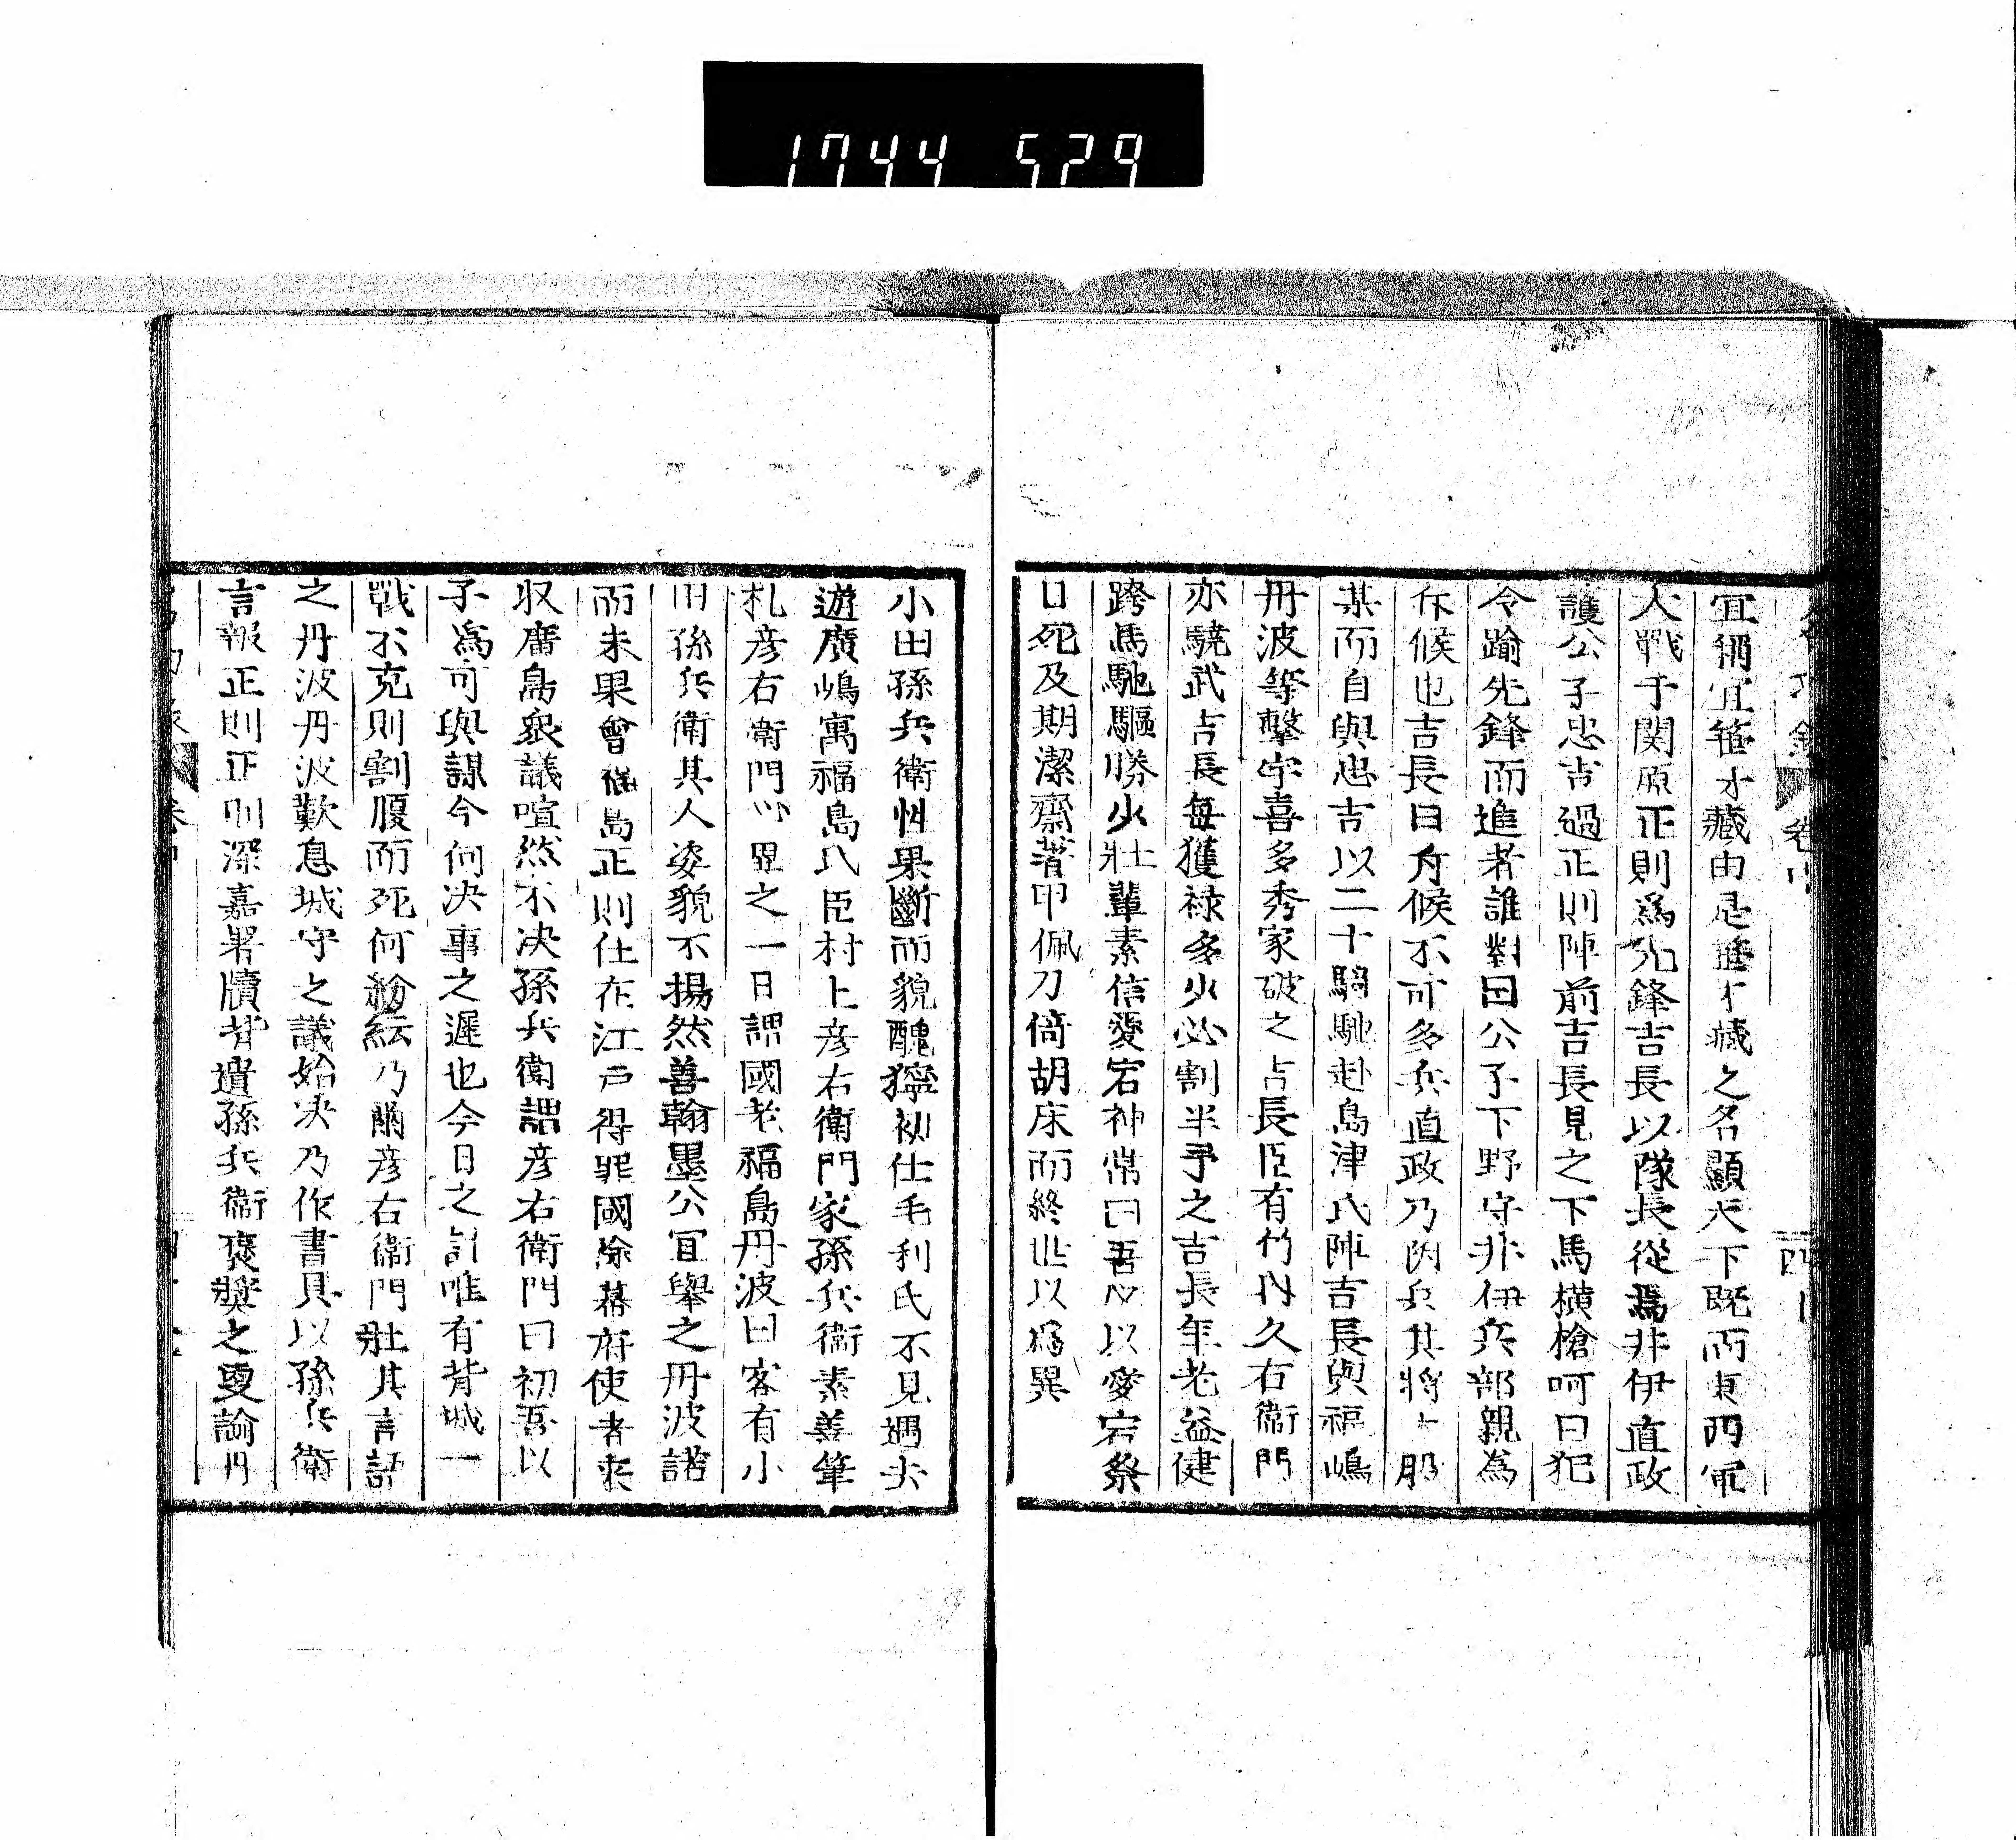 1744 529
宜稱宜笹才藏由是笹才藏之名顯天下既而東西軍
大戰于関原正則爲先鋒吉長以隊長從焉井伊直政
護公子忠吉過正則陣前吉長見之下馬横槍呵曰犯
令踰先鋒而進者誰對曰公子下野守井伊兵部親為
斥候也吉長曰斥候不可多兵直政乃防兵其將士服
某而自與忠吉以二十騎馳赴島津氏陣吉長與福嶋
丹波等擊宇喜多秀家破之吉長臣有竹内久右衞門
亦驍武吉長每獲禄多少必割半予之吉長年老益健
跨馬馳驅勝少壯輩素信愛宕神常曰吾必以愛宕祭
日死及期潔齋著甲佩刀倚胡床而終世以爲異
小田孫兵衛性果斷而貌醜獰初仕毛利氏不見遇去
遊廣嶋寓福島氏臣村上彦右衛門家孫兵衞素善筆
札彦右衛門以異之一日謂國老福島丹波曰客有小
田孫兵衛其人姿貌不揚然善翰墨公宜舉之丹波諾
而未果會福島正則仕在江戸得罪國除幕府使者来
収廣島衆議喧然不决孫兵衛謂彦右衛門曰初吾以
子爲可與謀今何决事之遲也今日之計唯有背城一
戰不克則割腹而死何紛紜乃爾彦右衞門壯其言語
之丹波丹波歎息城守之議始决乃作書具以孫兵衛
言報正則正則深嘉署牘背遺孫兵衞褒奬之更諭丹